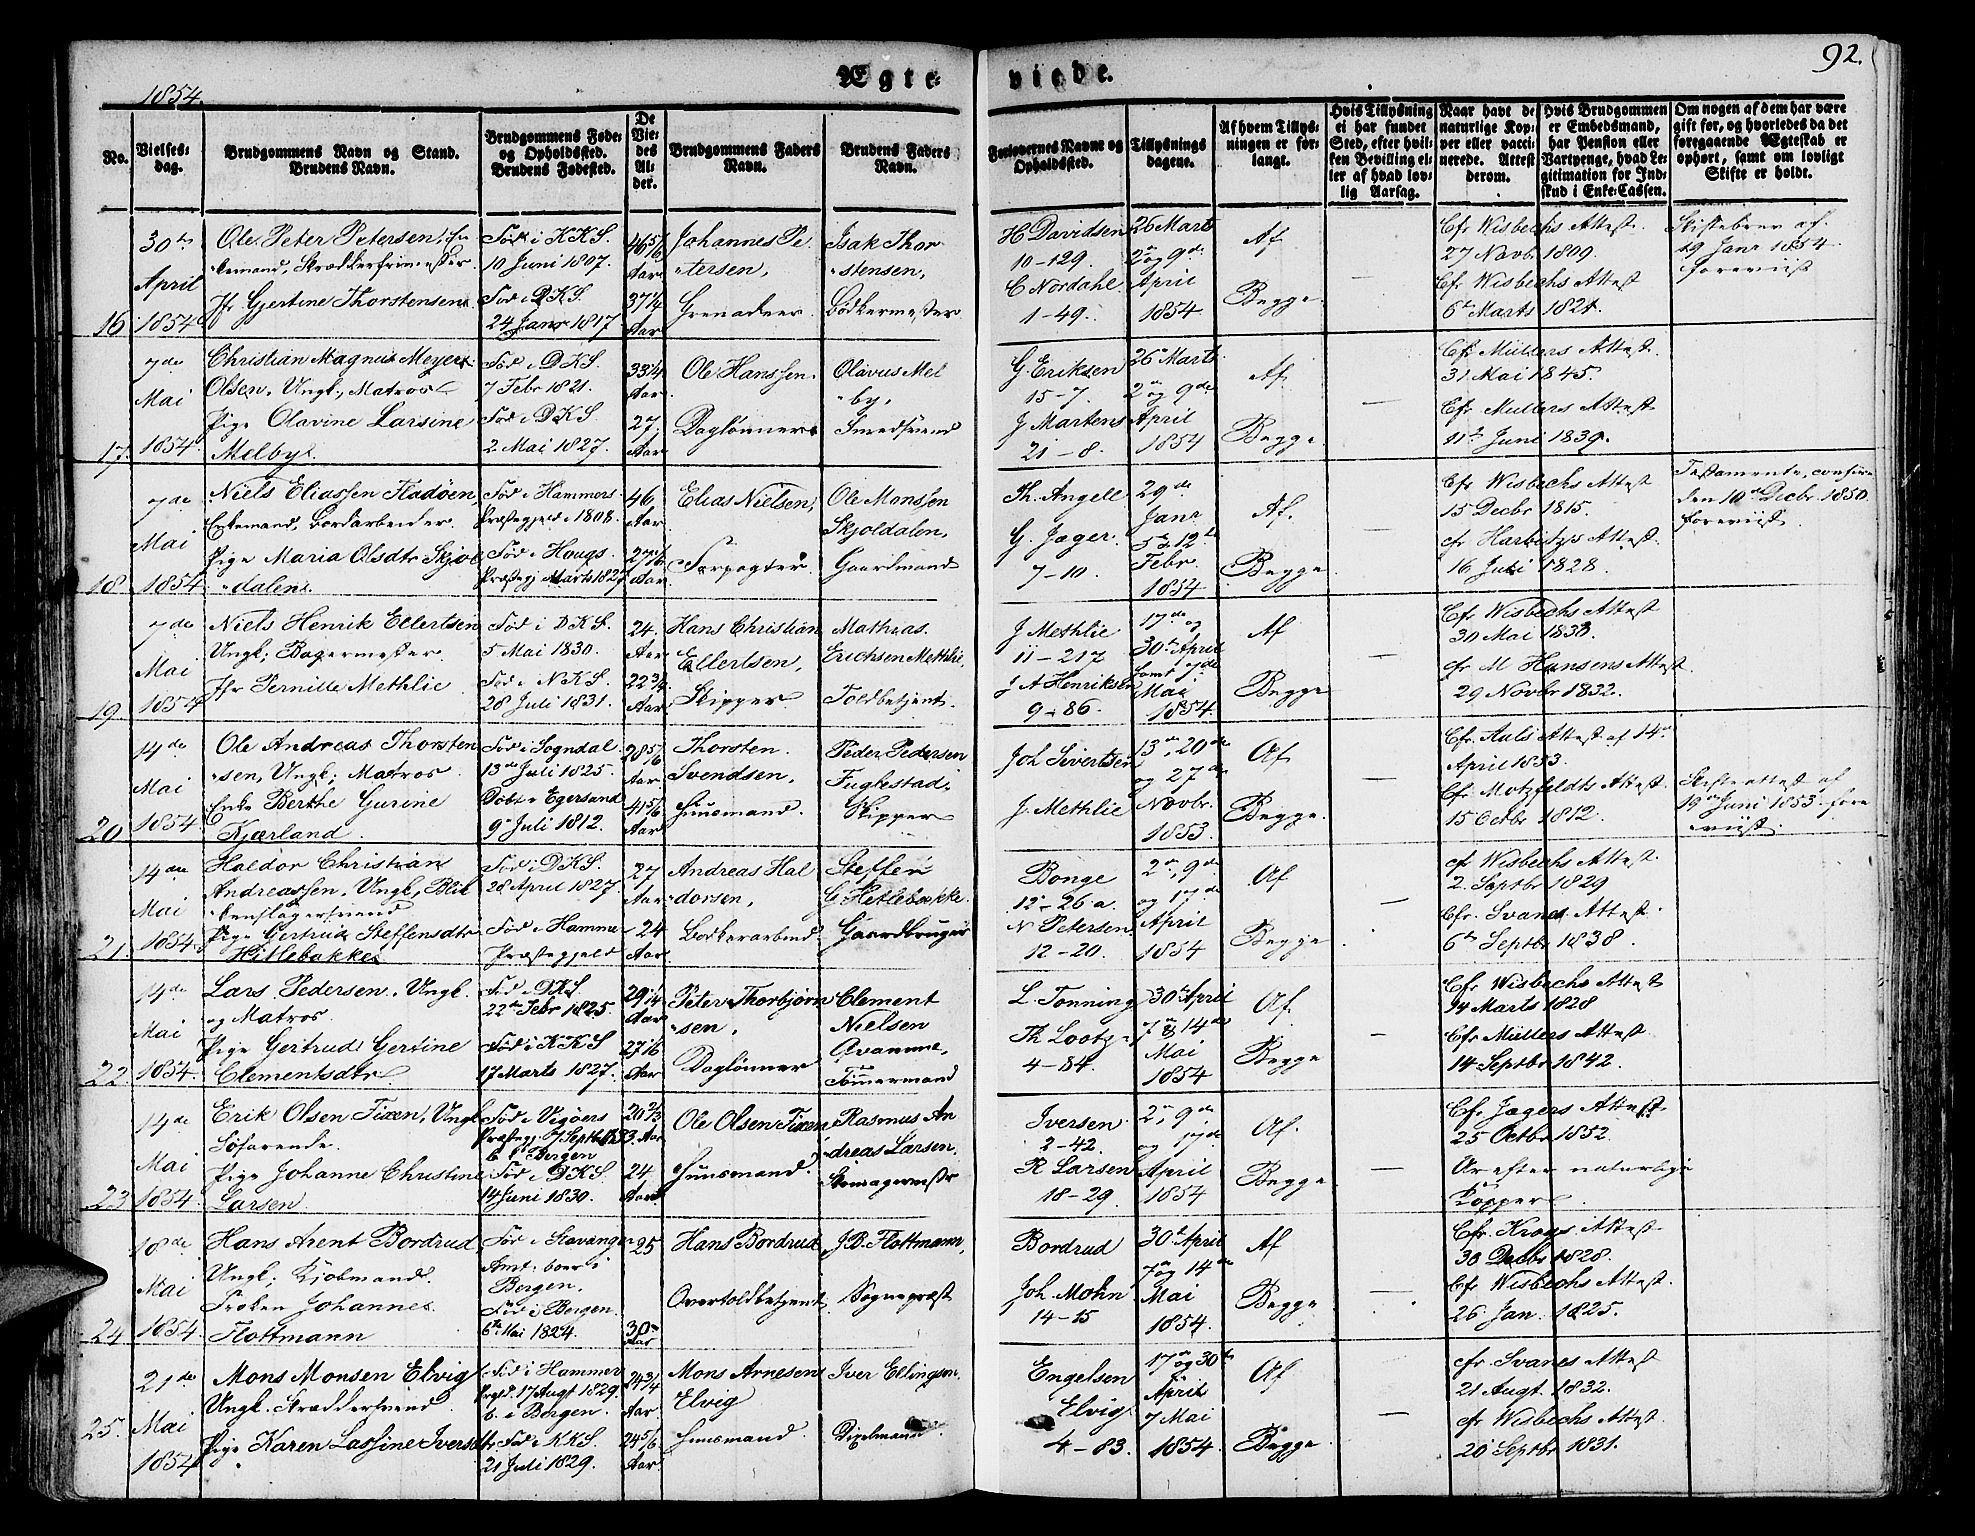 92.
1854.
Ægteviede.
No.
Vielsesdag.
Brudgommens Navn og Stand.
Brudens Navn.
Brudgommens Føde- og Opholdssted.
Brudens Fødested.
De Viedes Alder.
Brudgommens Faders Navn.
Brudens Faders Navn.
Forlovernes Navne og Opholdssted.
Tillysningsdagene.
Af hvem Tillysningen er forlangt.
Hvis Tillysning ei har fundet Sted, efter hvilken Bevilling eller af hvad lovlig Aarsag.
Naar havt de naturlige Kopper eller vaccinerede. Attest derom.
Hvis Brudgommen er Embedsmand, har Pension eller Vartpenge, hvad Legitimation for Indskud i Enke-Cassen.
Om nogen af dem har være gift før, og hvorledes da det foregaaende Ægteskab er ophørt, samt om lovligt Skifte er holdt.
16
30te April 1854
Ole Peter Petersen, En-
kemand, Skrædderfrimester
Jfr Gjertine Thorstensen
Fød i KKS.
10 Juni 1807.
Fød i DKS.
24 Janr 1817
46 5/6 Aar
37 1/4 Aar
Johannes Pe-
tersen,
Grenadeer
Isak Thor-
stensen,
Bødkermester
H Davidsen
10-129.
C Nordahl
1-49.
26 Marts
2n og 9de
April
1854
Af
Begge.
—
Cfr Wisbechs Attest.
27 Novbr 1809.
Cfr Wisbechs Attest
6te Marts 1821.
Skiftebrev af
19 Janr 1854
foreviist
17.
7de Mai 1854.
Christian Magnus Meyer
Olsen, Ungk., Matros
Pige Olavine Larsine
Melbye
Fød i DKS.
7 Febr 1821.
Fød i DKS.
2 Mai 1827.
33 1/4 Aar.
27. Aar
Ole Hanssen.
Daglønner
Olavus Mel-
by,
Smedsvend
G. Eriksen
15-7.
J Martens
21-8.
26 Marts
2n og 9de
April
1854
Af
Begge.
—
Cfr Müllers Attest.
31 Mai 1845.
Cfr Müllers Attest
11te Juni 1839.
18
7de Mai 1854.
Niels Eliassen Fladøen,
Enkemand, Bordarbeider.
Pige Maria Olsdtr Skjol-
dalen.
Fød i Hammers
Præstegjeld 1808.
Fød i Hougs
Præstegj Marts 1827
46 Aar.
27 1/6 Aar
Elias Nielsen,
Forpagter
Ole Monssen
Skjoldalen,
Gaardmand
Th. Angell
G. Jæger.
7-10.
29de
Janr
5 & 12te
Febr
1854
Af.
Begge.
—
Cfr Wisbechs Attest
15 Decbr 1815.
cfr Harbitzs Attest.
16 Juli 1828.
Testamente, confirm
den 10 Decbr 1850
foreviist.
19.
7de Mai 1854
Niels Henrik Ellertsen
Ungk; Bagermester.
Jfr Pernille Methlie
Fød i DKS.
5 Mai 1830.
Fød i NKS.
28 Juli 1831.
24. Aar
22 3/4 Aar
Hans Christian
Ellertsen,
Skipper
Mathias.
Erichsen Methlie,
Toldbetjent.
J Methlie
11-217
J A Henriksen
9-86.
17de og
30te April
samt 7de
Mai
1854.
Af
Begge
—
Cfr Wisbechs Attest
30 Mai 1833.
cfr M Hansens Attest.
29 Novbr 1832.
20
14de Mai 1854.
Ole Andreas Thorsten-
sen, Ungk; Matros
Enke Berthe Gurine
Kjærland.
Fød i Sogndal.
13de Juli 1825.
Døbt i Egersund
9 Juli 1812.
28 5/6 Aar.
41 5/6 Aar
Thorsten.
Svendsen,
Huusmand.
Peder Pedersen
Fuglestad,
Skipper
Joh Sivertsen
J. Methlie
13de, 20de
og 27de
Novbr.
1853.
Af
Begge.
—
Cfr. Auls Attest af 14de
April 1853.
Cfr. Motzfeldts Attest
15 Octbr 1812.
Skifteattest af
19 Juni 1853 fore-
viist.
21.
14de Mai 1854
Haldor Christian
Andreassen, Ungk, Blik-
kenslagersvend
Pige Gertrud Steffensdtr
Hitlebakke
Fød i DKS.
28 April 1827.
Fød i Hammer
Præstegjeld
27 Aar
24 Aar.
Andreas Hal-
dorsen,
Bødkerarbeid.
Steffen
G Hetlebakke
Gaardbruger
Bonge
12-26a.
N Petersen
12-20.
2n, 9de
og 17de
April
1854
Af
Begge
—
cf Wisbechs Attest.
2. Septbr 1829
Cfr. Svanes Attest.
6te Septbr 1838.
22
14de Mai 1854.
Lars Pedersen, Ungk.
og Matros.
Pige Gertrud Gertine
Clementsdtr.
Fød i DKS
22de Febr 1825.
Fød i KKS
17 Marts 1827.
29 1/4 Aar
27 1/6 Aar.
Peter Thorbjørn-
sen,
Daglønner
Clement
Nielsen
Qvamme,
Tømmermand
L. Tonning
Th Lootz
4-84.
30te April
7n & 14de
Mai
1854
Af
Begge
—
Cfr Wisbechs Attest
14 Marts 1828
Cfr Müllers Attest.
14 Septbr 1842.
23
14de Mai 1854.
Erik Olsen Tixen, Ungk.
Søfarende.
Pige Johanne Christine
Larsen
Fød i Vigøers
Præstegj. 7 Septb 1833
b. i Bergen
Fød i DKS.
14 Juni 1830.
20 2/3 Aar
24 Aar
Ole Olsen Tixen,
Huusmand.
Rasmus An-
dreas Larsen.
Skomagermestr
Iversen
2-42.
R Larsen
18-29.
2n, 9de
og 17de
April
1854
Af.
Begge.
—
Cfr. Jægers Attest.
25 Octbr 1852.
Ar efter naturlige
Kopper.
24
18de Mai 1854.
Hans Arent Bordrud
Ungk; Kjøbmand.
Frøken Johanne
Flottmann
Fød i Stavanger
Amt. boer i
Bergen,
Fød i Bergen.
6te Mai 1824.
25
30 Aar
Hans Bordrud
Overtoldbetjent
J. B. Flottmann,
Sognepræst
Bordrud
Joh. Mohn
14-15
30te April
7n og 14de
Mai
1854.
Af
Begge
—
Cfr. Krogs Attest.
30 Decbr 1828.
Cfr. Wisbechs Attest.
26 Jan. 1825.
25.
21de Mai 1854
Mons Monsen Elvig
Ungk. Skræddersvend.
Pige Karen Lassine Iversdtr
Fød i Hammer
Prgld. 17 Augt 1829.
b. i Bergen.
Fød i KKS.
21 Juli 1829.
24 3/4 Aar.
24 5/6 Aar.
Mons Arnesen
Elvig
Huusmand.
Iver Ellingsen.
Engelsen
Elvig
4-83.
17de og 30te
April
7 Mai
1854.
Af
Begge.
—
cfr Svanes Attest
21 Augt. 1832.
cfr Wisbechs Attest
20 Septbr 1831.